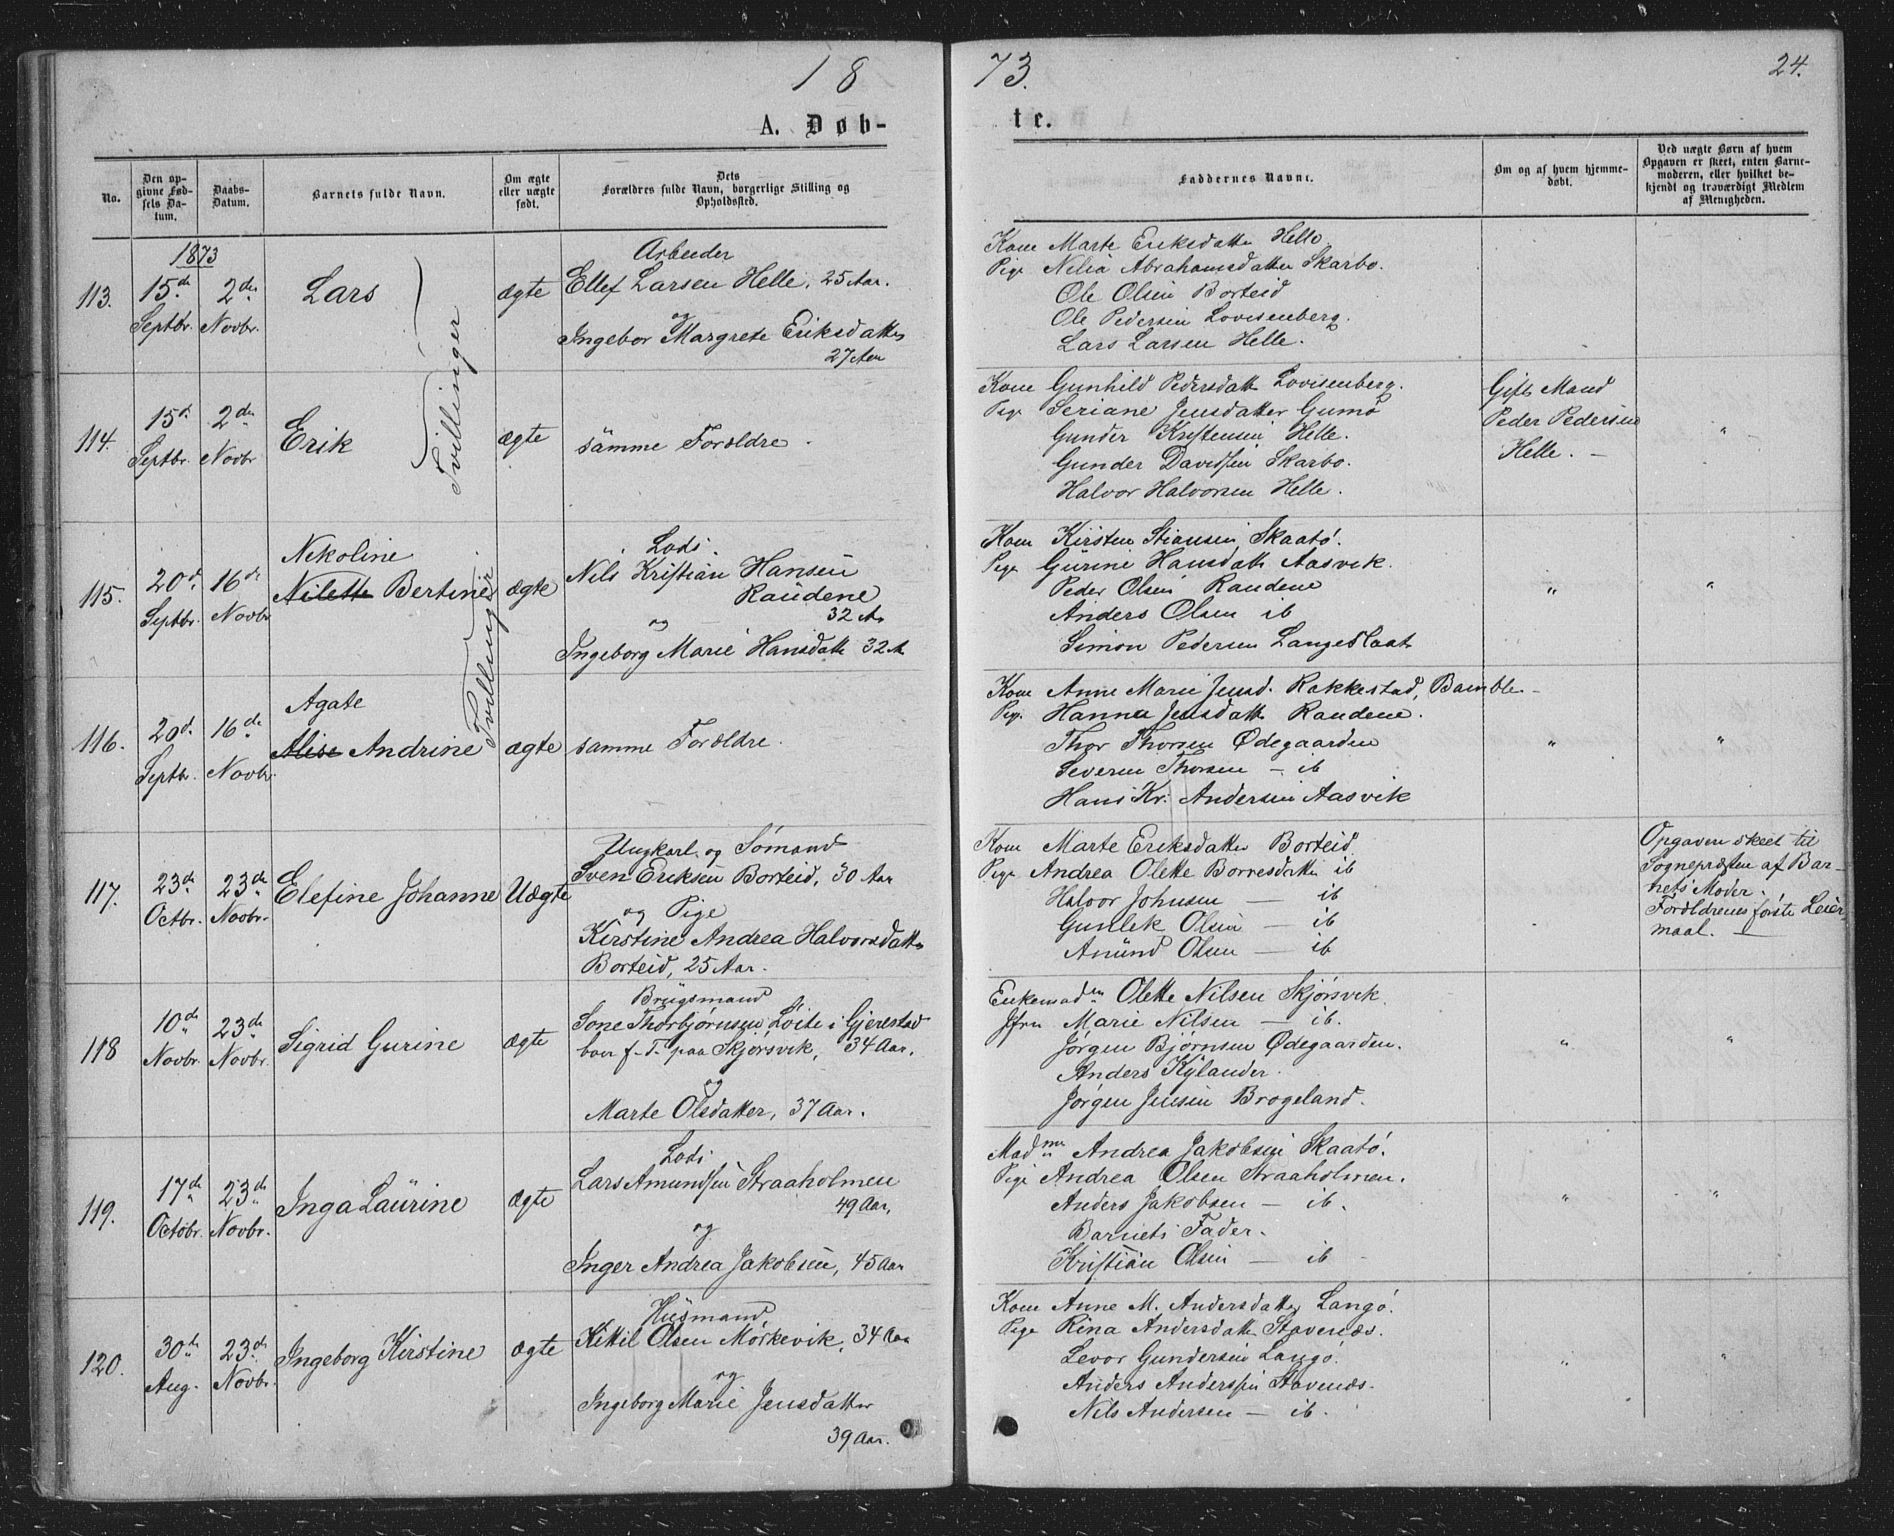 18
73.
24.
A. Døb-
te.
No.
Den opgivne Fødsels Datum.
Daabs-Datum.
Barnets fulde Navn.
Om ægte eller uægte født.
Dets Forældres fulde Navn, borgerlige Stilling og Opholdssted.
Faddernes Navne.
Om og af hvem hjemmedøbt.
Ved uægte Børn af hvem Opgaven er skeet, enten Barnemoderen, eller hvilket bekjendt og troværdigt Medlem af Menigheden.
1873
113.
15de Septbr.
2den Novbr.
Lars
Tvillinger
ægte
Arbeider
Ellef Larsen Helle, 25 Aar.
og
Ingebor Margrete Eriksdatter
27 Aar
Kone Marte Eriksdatter Helle.
Pige Nilia Abrahamsdatter Skarbo.
Ole Olsen Borteid
Ole Pedersen Lovisenberg.
Lars Larsen Helle.
114.
15d. Septbr.
2den Novbr
Erik
ægte
samme Forældre.
Kone Gunhild Pedersdatt Lovisenberg.
Pige Seriane Jensdatter Gumø
Gunder Kristensen Helle.
Gunder Davidsen Skarbo.
Halvor Halvorsen Helle.
Gift Mand
Peder Pedersen
Helle. —
"
115.
20d. Septbr.
16de Novbr
Nekoline
Nilette Bertine
Tvillinger
ægte
Lods.
Nils Kristian Hansen
Raudene
32 Aar
og
Ingeborg Marie Hansdatt 32 A
Kone Kirsten Stiansen Skaatø.
Pige Gurine Hansdatt Aasvik.
Peder Olsen Raudene
Anders Olsen ib
Simon Pedersen Langeslaat
"
"
116.
20d. Septbr.
16de Novbr.
Agate
Alise Andrine
ægte
samme Forældre.
Kone Anne Marie Jensd. Rakkestad, Bamble —
Pige Hanna Jensdatt Raudene.
Thor Thorsen Ødegaarden
Severin Thorsen — ib
Hans Kr. Andersen Aasvik
"
"
117.
23de Octbr.
23de Novbr.
Elefine Johanne
Uægte
Ungkarl og Sømand
Sven Eriksen Borteid, 30 Aar
og Pige
Kirstine Andrea Halvorsdatter
Borteid, 25 Aar.
Kone Marte Eriksdatter Borteid,
Pige Andrea Olette Borresdatter ib
Halvor Johnsen — ib
Gunlek Olsen — ib
Amund Olsen — ib
Opgaven skeet til
Sognepræsten af Bar-
nets Moder.
Forældrenes første Leier-
maal. —
118
10de Novbr.
23de Novbr.
Sigrid Gurine
ægte
Brugsmand
Sone Thorbjørnsen Løite i Gjerestad
boer f. T. paa Skjørsvik, 34 Aar.
og
Marte Olsdatter, 37 Aar.
Enkemadm Olette Nilsen Skjørsvik.
Jfru Marie Nilsen — ib.
Jørgen Bjørnsen Ødegaarden.
Anders Kylander.
Jørgen Jensen Brogeland.
"
"
119.
17de Octobr.
23de Novbr.
Inga Laurine
ægte
Lods
Lars Amundsen Straaholmen
49 Aar,
og
Inger Andrea Jakobsen, 45 Aar
Madme Andrea Jakobsen Skaatø.
Pige Andrea Olsen Straaholmen.
Anders Jakobsen — ib.
Barnets Fader.
Kristian Olsen — ib
"
"
120.
30te Aug.
23de Novbr.
Ingeborg Kirstine
ægte
Husmand,
Kittil Olsen Mørkevik, 34 Aar
og
Ingeborg Marie Jensdatter
39 Aar.
Kone Anne M. Andersdatter Langø.
Pige Rina Andersdatt Stavenæs.
Levor Gundersen Langø.
Anders Andersen Stavenæs.
Nils Andersen — ib.
"
"